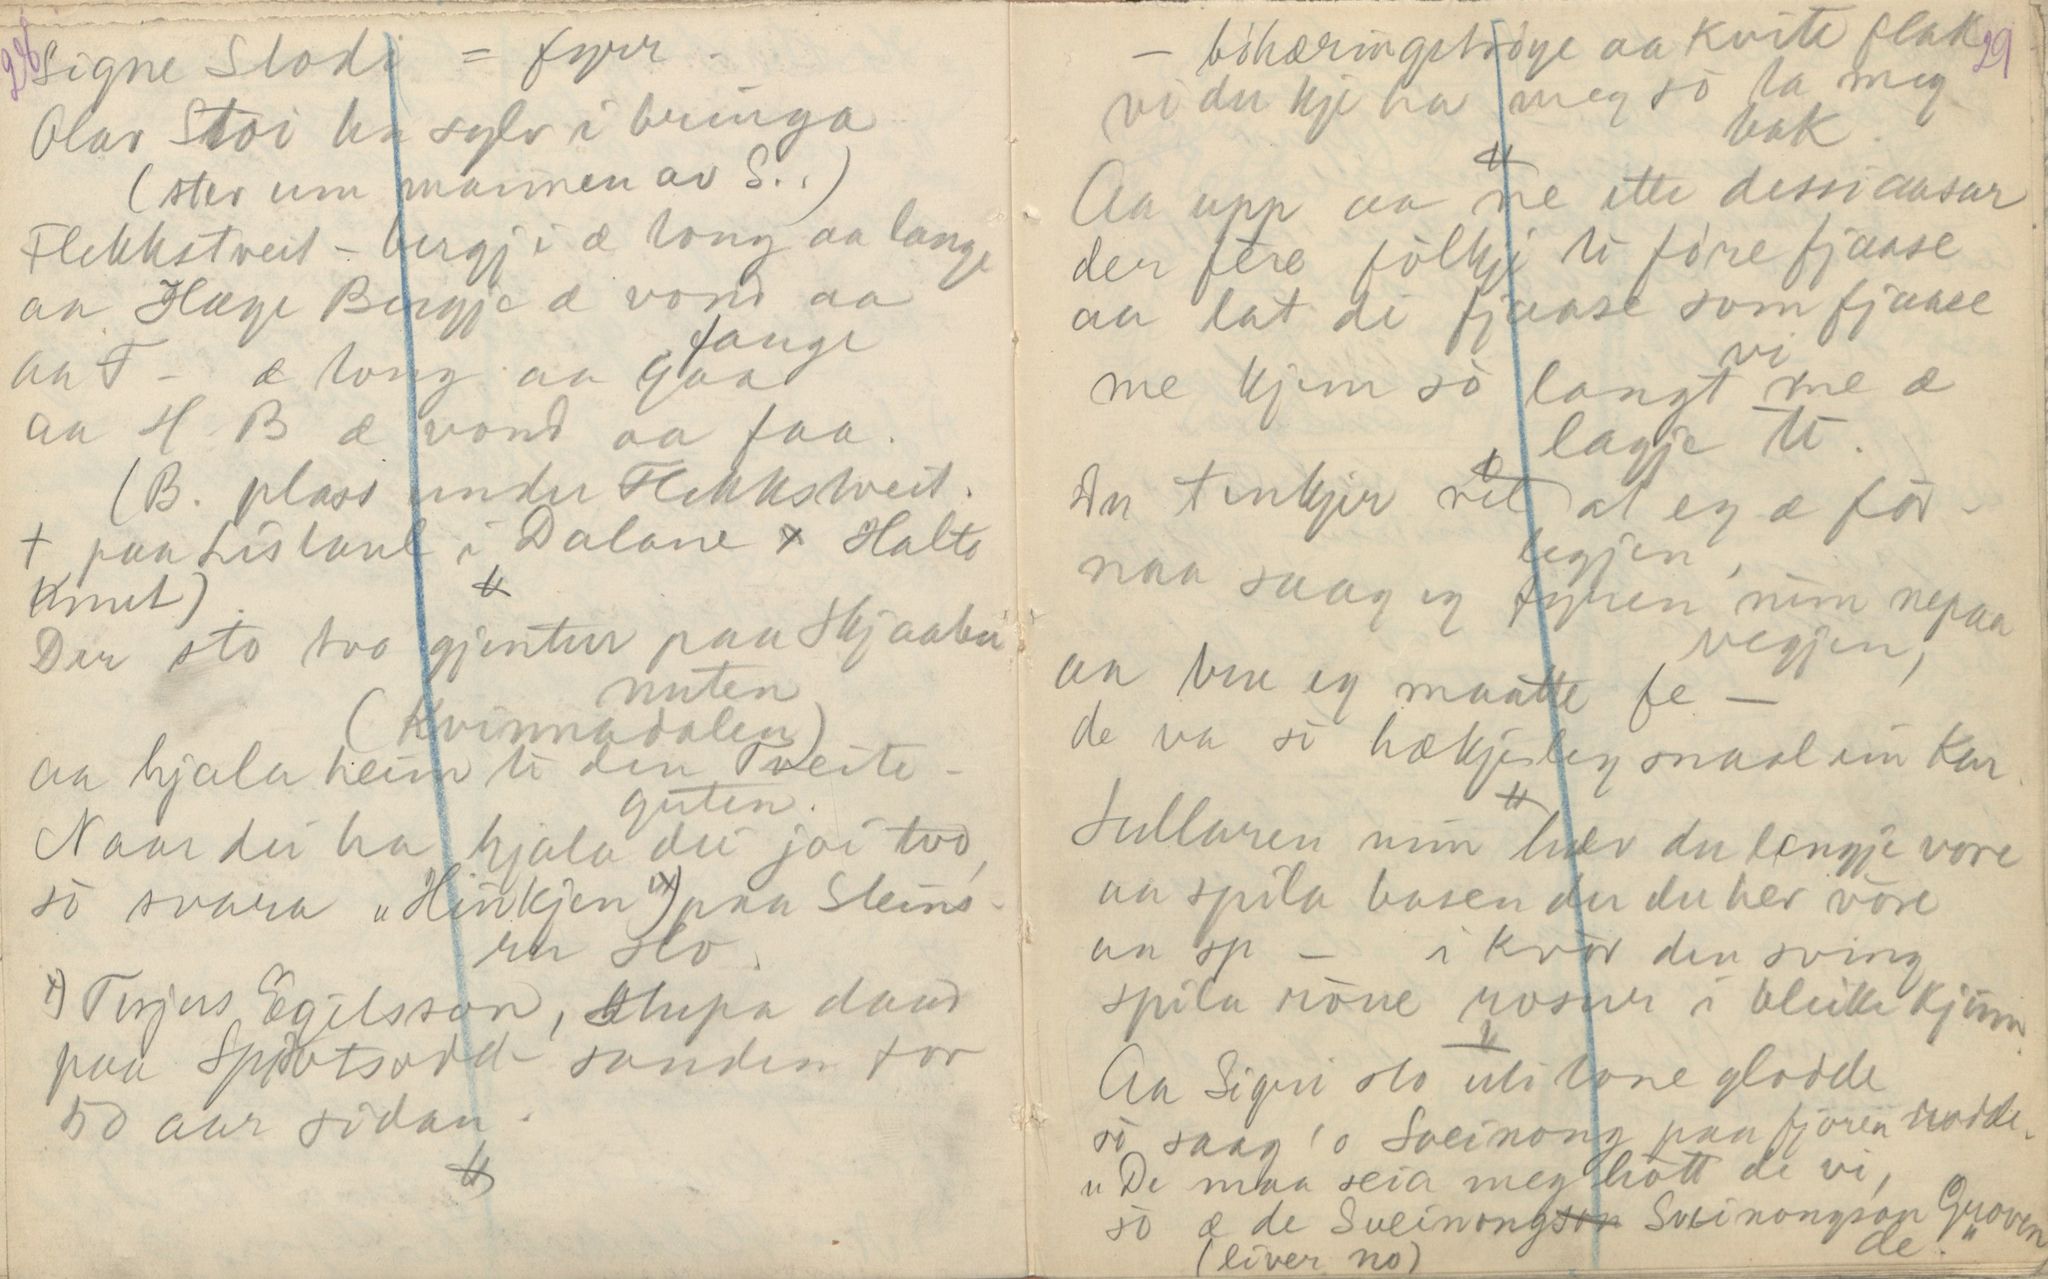 28
Signe Stodi = fyrr -
Olav Stoi ha sylv i bringa
(stev um mannen av S..)
Flekkstveit - bergji æ tong aa lange
aa Hæge Bergje æ vond aa
fange
aa F - æ tong aa gaa
aa H. B æ vond aa faa.
(B. plass under Flekkstveit.
+ paa Listaul i Dalane x Halto
Knut)
Der sto tvo gjentur paa Skjaabu
nuten
(Kvinnadalen)
aa hjala heim ti den Tveite-
guten.
Naar dei ha hjala dei joi tvo,
so svara "Hinkjen" x) paa Steins-
ru slo.
x) Terjus Egilsson, stupa daud
paa Spjotsodd sanden for
50 aar sidan.
29
- bòhæringstrøye aa kvite flak
vi du kje ha meg so ta meg
bak.
Aa upp aa ne ette dessi aasar
der fere fòlkji ti fòre fjaase
aa lat di fjaase som fjaase
vi
me kjem sò langt me æ
lagje ti.
Du tenkjer at eg æ for-
legjen,
naa saag eg fyren min nepaa
vegjen,
aa ber eg maatte fe -
de va sò hækjeleg snaal ein kar.
Sullaren min hæv du lengje vore
aa spila basen der du hev vòre
aa sp - i kvòr den sving
spila ròue rosur i bleike kjinn.
Aa Sigri sto uti tone glodde
sò saag 'o Sveinong paa fjoren rodde.
"De maa seia meg hòtt de vi,
sò æ de Sveinong Sveinongson Groven
de."
(liver no)